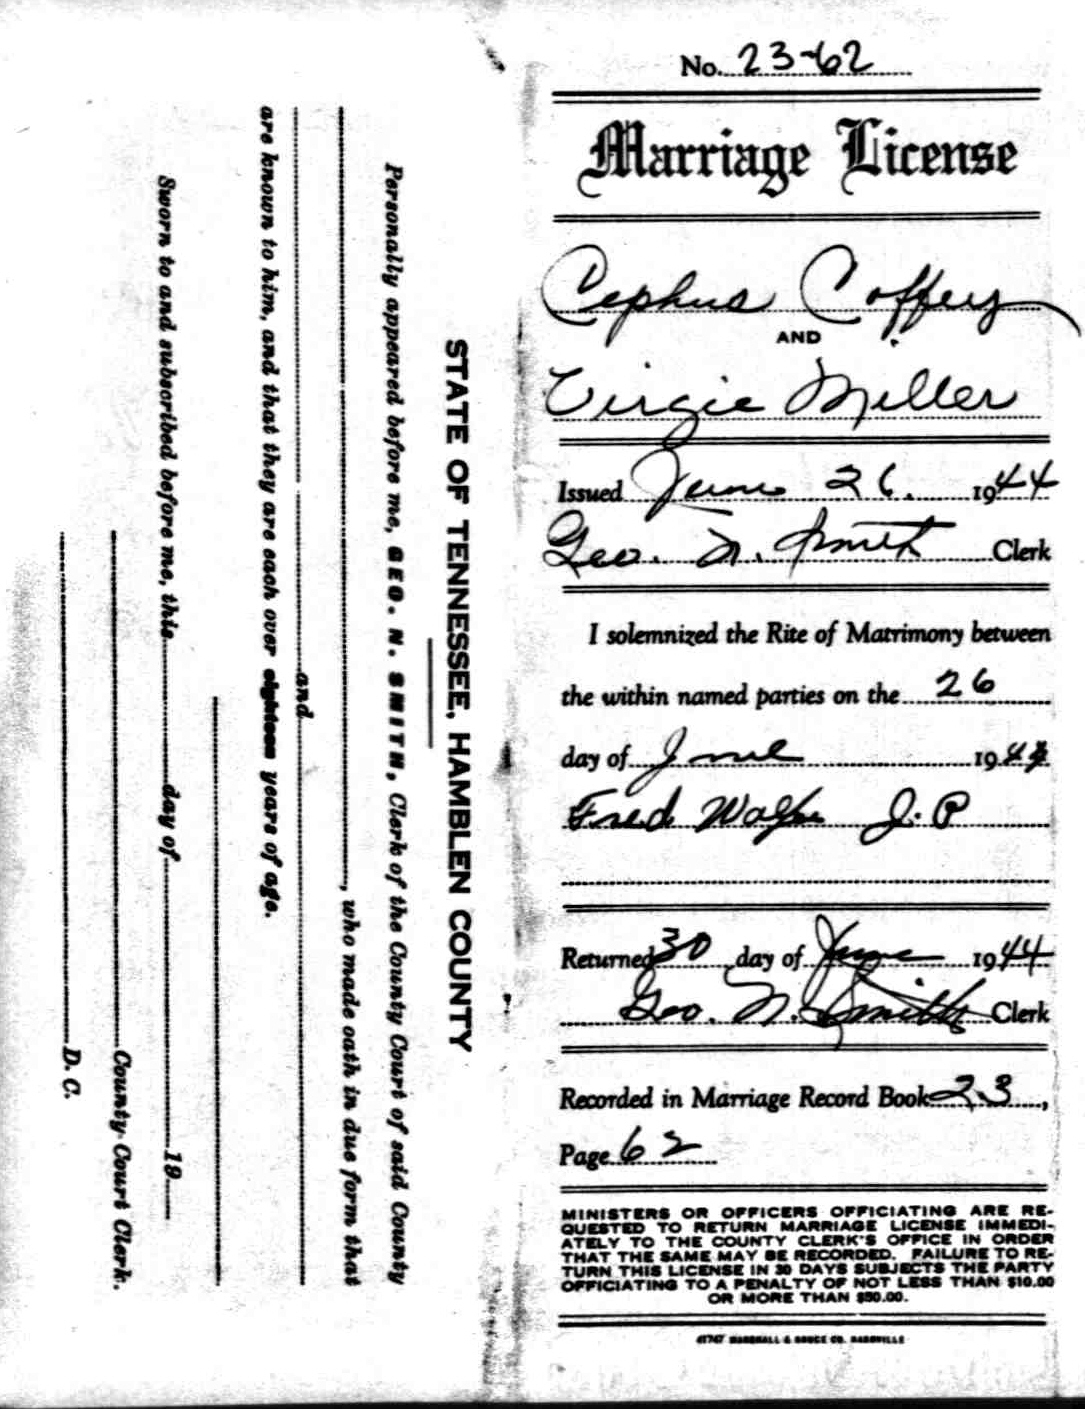 No. 23-62
Marriage License
Cephus Coffery
AND
Virgie Miller
Issued June 26. 1944
Geo. N. Smith Clerk
I solemnized the Rite of Matrimony between
the within named parties on the 26
day of June 1944
Fred Wolfe J.P
Returned 30 day of June 1944
Geo. N. Smith Clerk
Recorded in Marriage Record Book 23,
Page 62
MINISTERS OR OFFICERS OFFICIATING ARE RE-
QUESTED TO RETURN MARRIAGE LICENSE IMMEDI-
ATELY TO THE COUNTY CLERK'S OFFICE IN ORDER
THAT THE SAME MAY BE RECORDED. FAILURE TO RE-
TURN THIS LICENSE IN 30 DAYS SUBJECTS THE PARTY
OFFICIATING TO A PENALTY OF NOT LESS THAN $10.00
OR MORE THAN $50.00.
MARSHALL & BRUCE CO. NASHVILLE
STATE OF TENNESSEE, HAMBLEN COUNTY
Personally appeared before me, GEO. N. SMITH, Clerk of the County Court of said County
, who made oath in due form that
and
are known to him, and that they are each over eighteen years of age.
Sworn to and subscribed before me, this day of 19
County Court Clerk.
D. C.